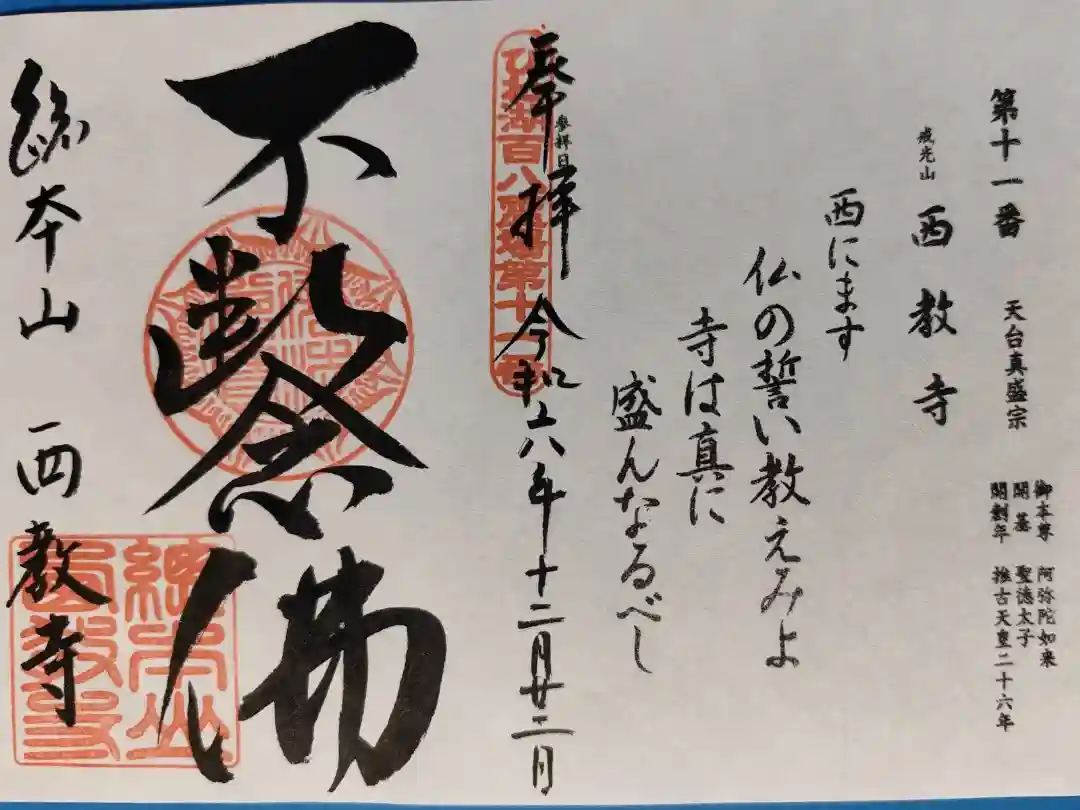 第十一番 天台真盛宗
御本尊 阿弥陀如来
開基 聖徳太子
開創年 推古天皇二十六年
戒光山 西教寺
西にます
仏の誓い教えみよ
寺は真に
盛んなるべし
参拝日
奉拝 令和六年十二月廿二日
びわ湖百八霊場第十一番
不斷念佛
総本山 西教寺
總本山西教寺